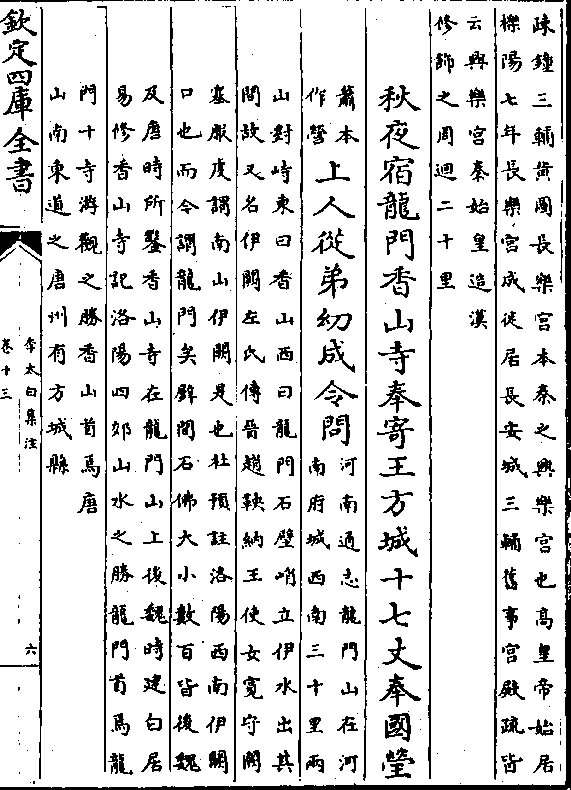 疎鐘三輔黃圖長樂宮本秦之興樂宮也高皇帝始居
櫟陽七年長樂宮成徙居長安城三輔舊事宮殿疏皆
云興樂宮秦始皇造漢
修飾之周迴二十里
秋夜宿龍門香山寺奉寄王方城十七丈奉國瑩
蕭本
作瑩
上人從弟幼成令問
河南通志龍門山在河
南府城西南三十里兩
山對峙東曰香山西曰龍門石壁峭立伊水出其
間故又名伊闕左氏傳晉趙鞅納王使女寬守闕
塞服虔謂南山伊闕是也杜預註洛陽西南伊闕
口也而今謂龍門矣壁間石佛大小數百皆後魏
及唐時所鑿香山寺在龍門山上後魏時建白居
易修香山寺記洛陽四郊山水之勝龍門首焉龍
門十寺遊觀之勝香山首焉唐
山南東道之唐州有方城縣
欽定四庫全書
李太白集注
卷十三
六